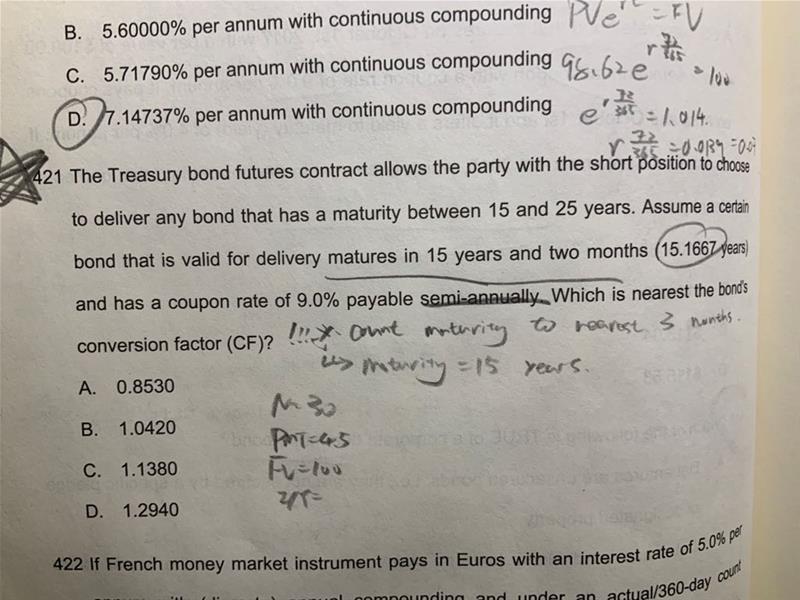 B. 5.60000% per annum with continuous compounding PVe = FV
C. 5.71790% per annum with continuous compounding 98.62e^r 72/365 = 100
D. 7.14737% per annum with continuous compounding e^r 72/365 = 1.014.
r 72/365 = 0.0139 =
421 The Treasury bond futures contract allows the party with the short position to choose
to deliver any bond that has a maturity between 15 and 25 years. Assume a certain
bond that is valid for delivery matures in 15 years and two months (15.1667 years)
and has a coupon rate of 9.0% payable semi-annually. Which is nearest the bond's
conversion factor (CF)? !!! * count maturity to nearest 3 months.
↳ maturity = 15 years.
A. 0.8530
N=30
B. 1.0420
PMT=4.5
C. 1.1380
FV=100
D. 1.2940
422 If French money market instrument pays in Euros with an interest rate of 5.0% per
compounding and under an actual/360-day count